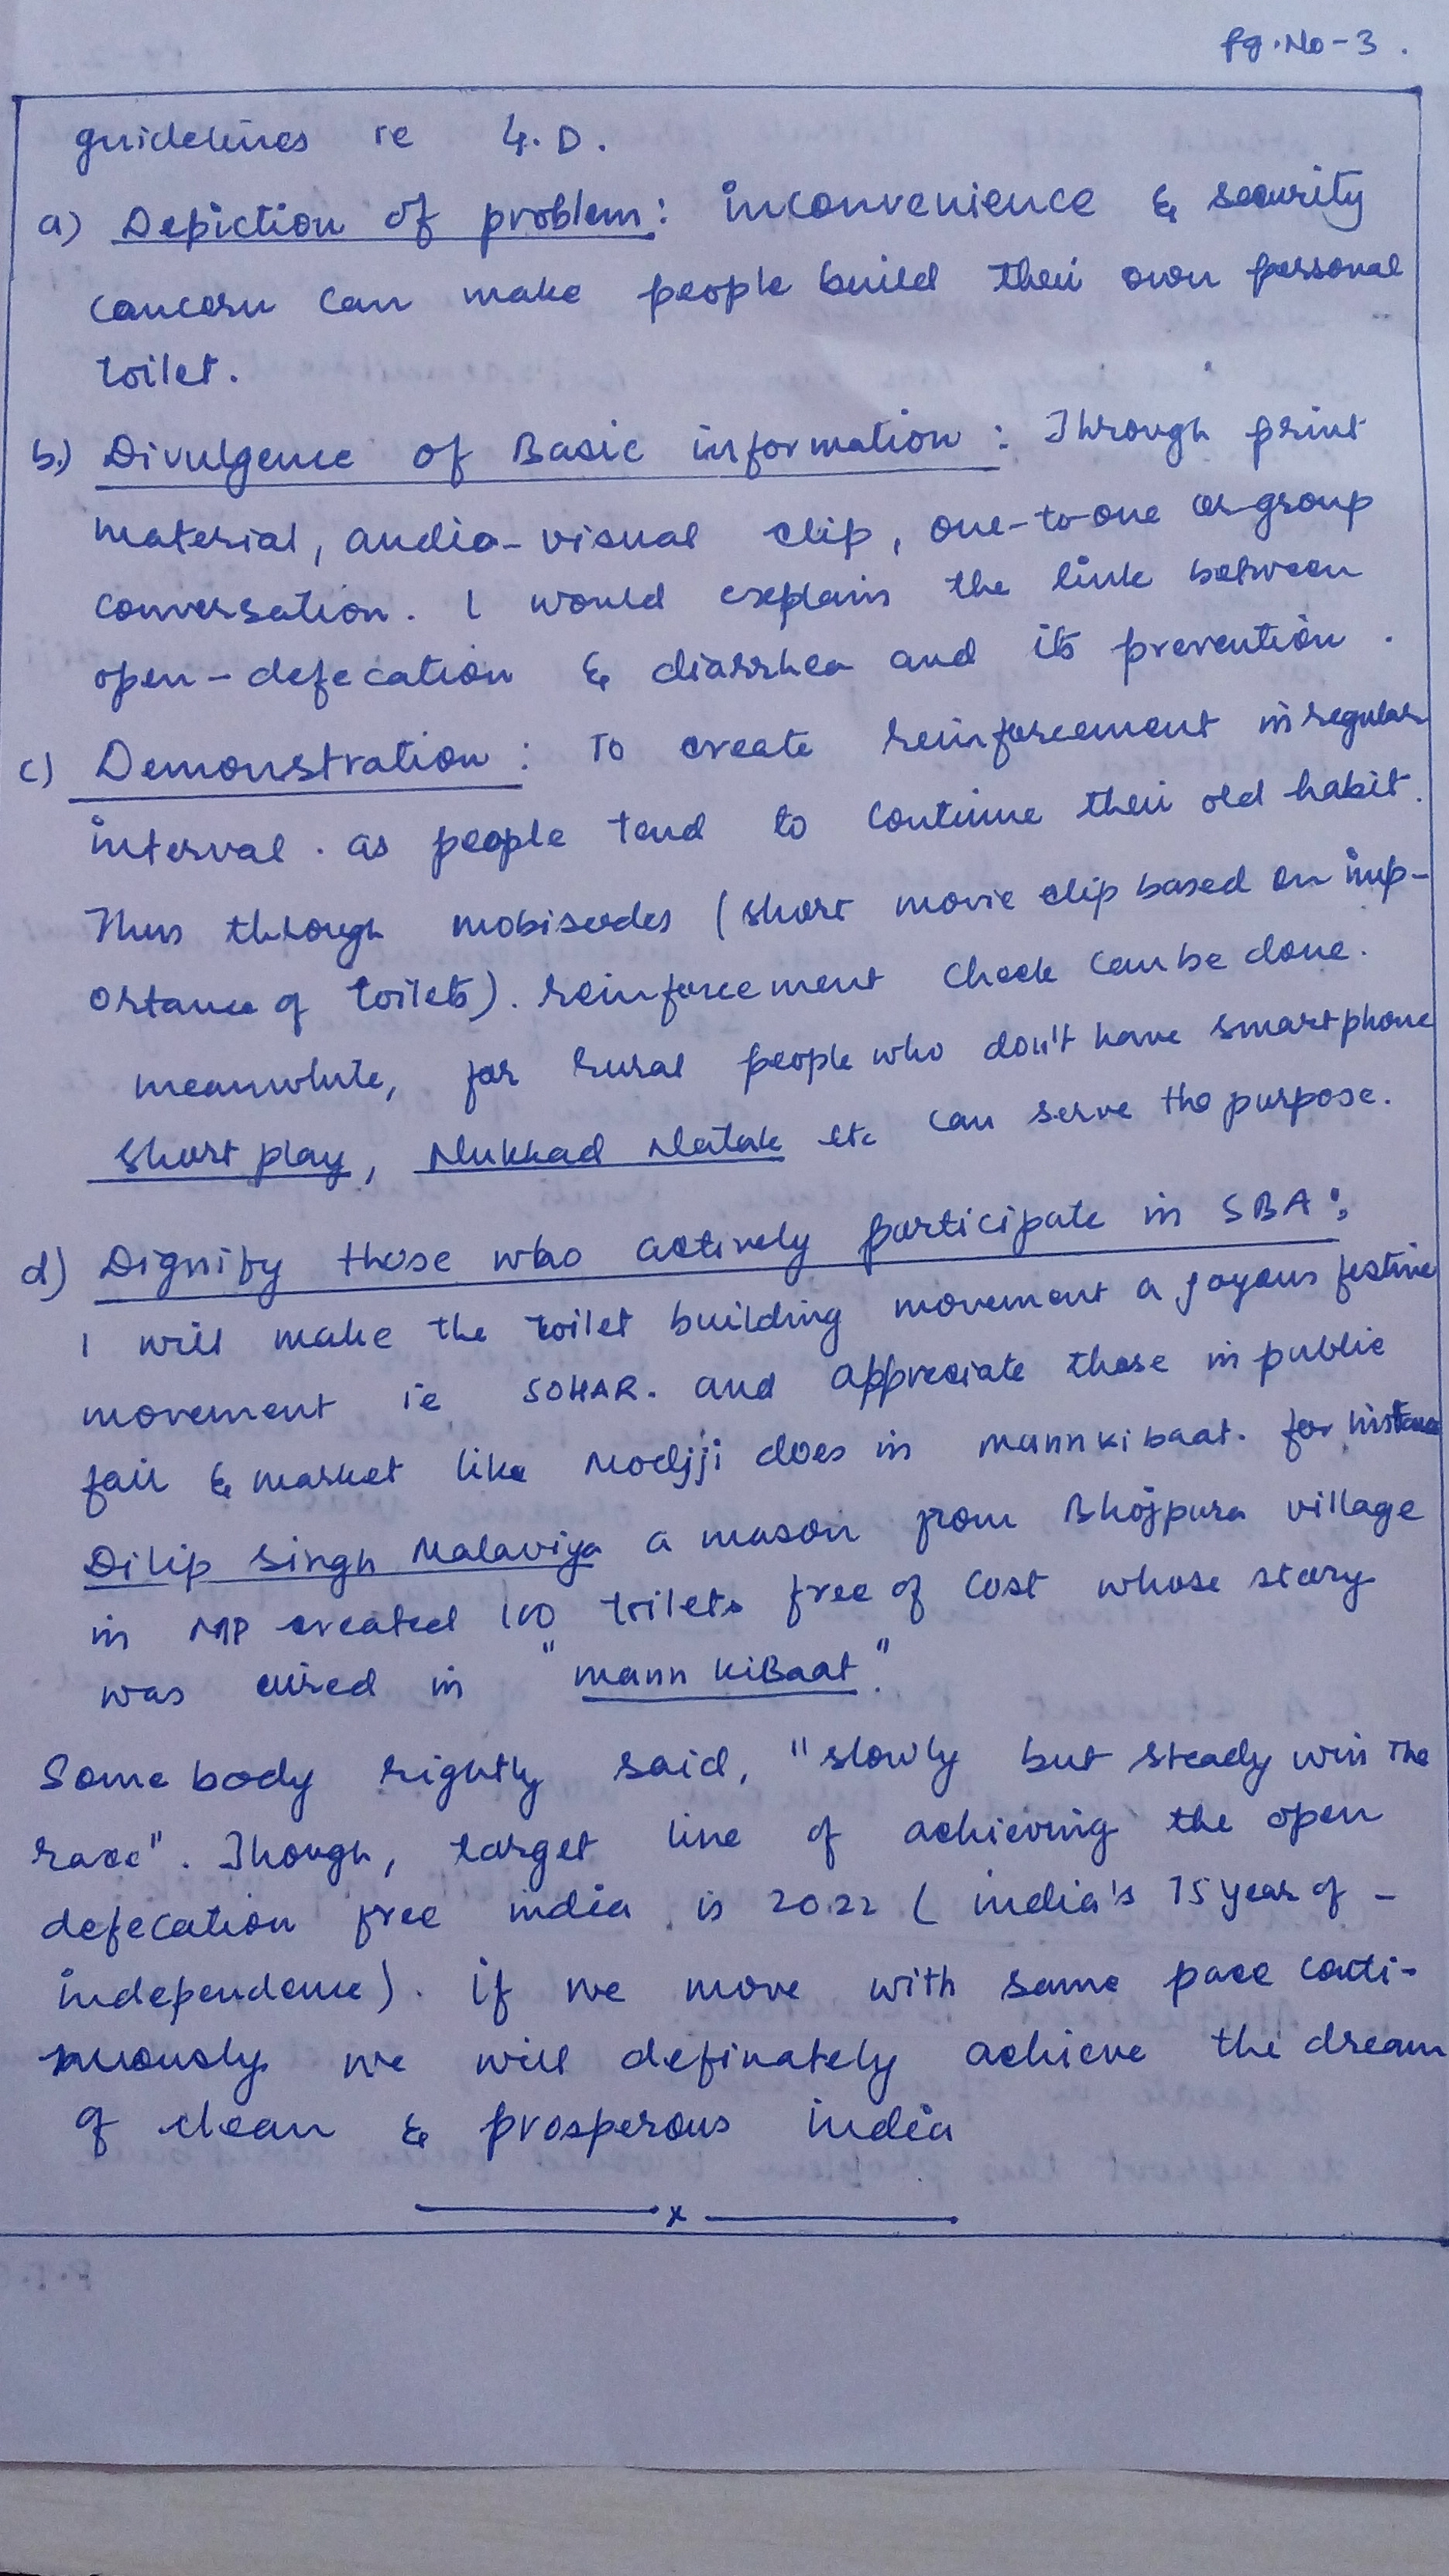 Pg.No-3.
guidelines ie 4.D.
a) Depiction of problem: inconvenience & security
concern can make people build their own personal
toilet.
b.) Divulgence of Basic information: Through print
material, audio-visual clip, one-to-one or group
conversation. I would explain the link between
open-defecation & diarrhea and its prevention.
c) Demonstration: To create reinforcement in regular
interval. as people tend to continue their old habit.
Thus through mobisodes (short movie clip based on imp-
ortance of toilets). reinforcement check can be done.
meanwhile, for rural people who don't have smartphone
short play, Nukkad Natak etc can serve the purpose.
d) Dignify those who actively participate in SBA:
I will make the toilet building movement a joyous festive
movement ie SOHAR. and appreciate those in public
fair & market like Modiji does in mann ki baat. for instance
Dilip Singh Malaviya a mason from Bhojpura village
in MP created 100 toilets free of cost whose story
was aired in "mann kiBaat."
Somebody rightly said, "slowly but steady win the
race". Though, target line of achieving the open
defecation free india is 2022 (india's 75 year of -
independence). if we move with same pace conti-
nuously we will definately achieve the dream
of clean & prosperous india
x